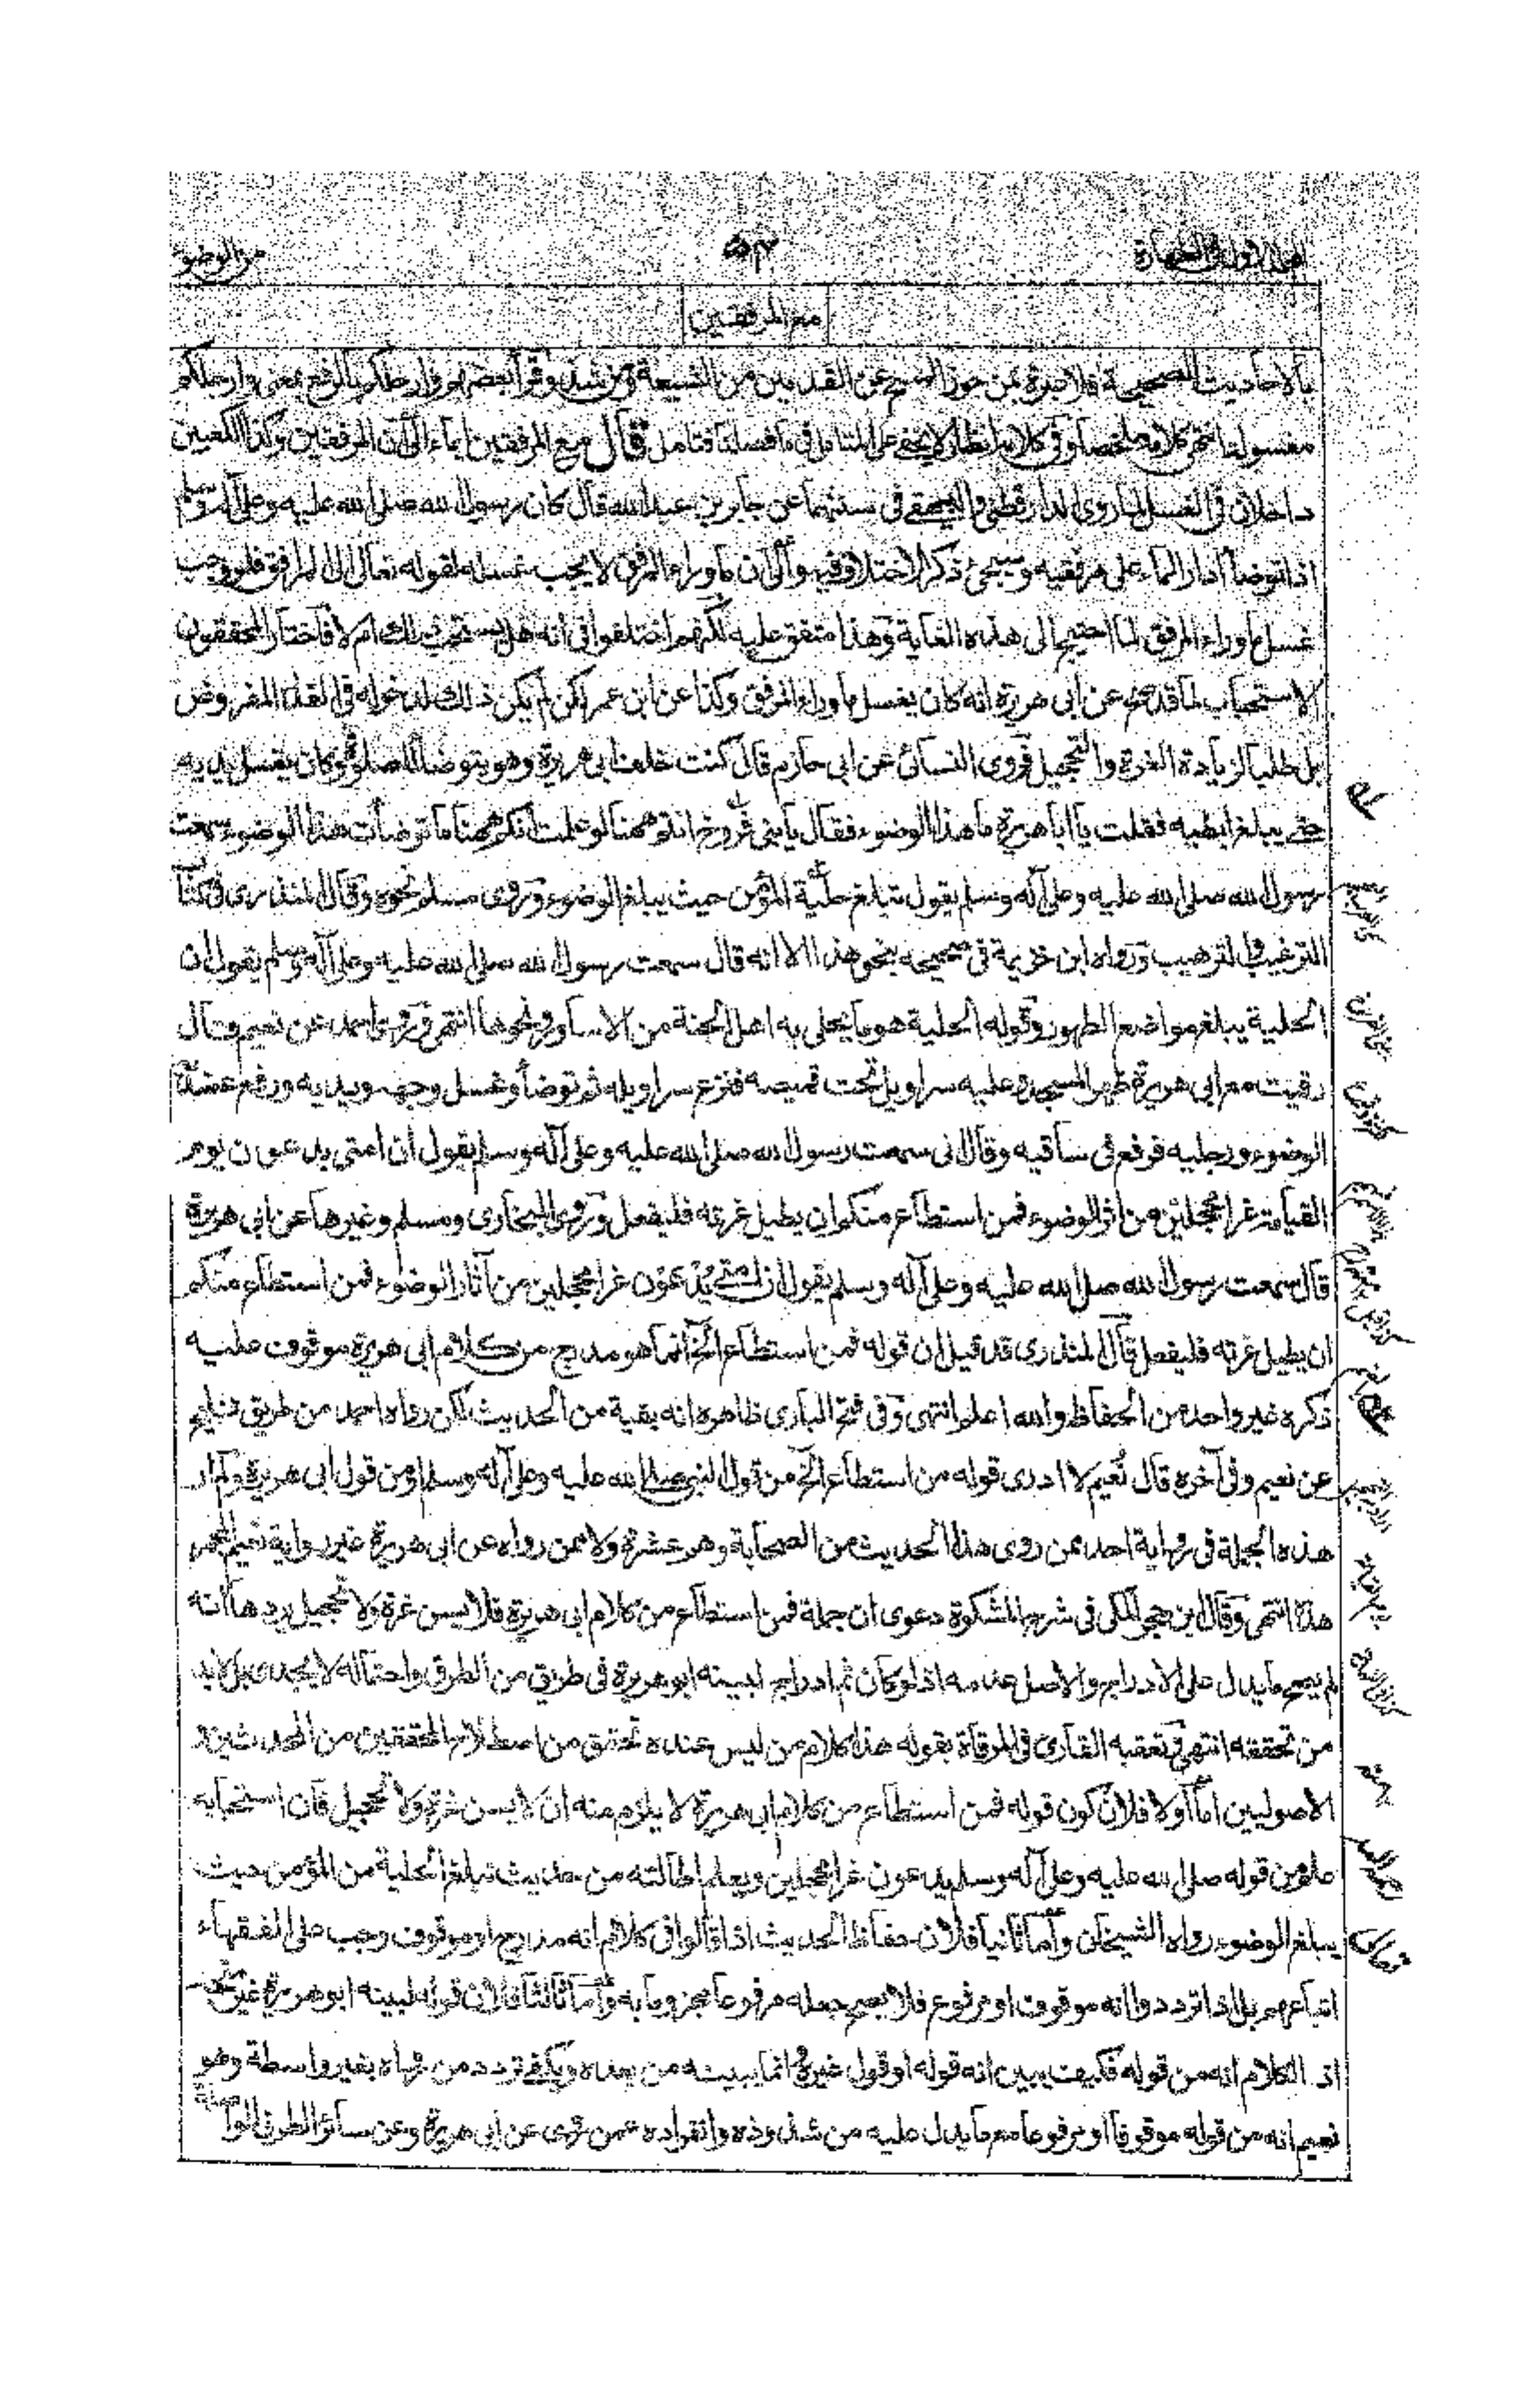 الجلد الاول فى الطهارة
٥٣
من الوضوء
مع المرفقين
بالاحاديث الصحيحة فلا عبرة بمن جوز المسح عن القدمين من الشيعة ومن شذ وقرأ بعضهم وارجلكم بالرفع بمعنى وارجلكم
مغسولة انتهى كلامه ملخصا وفى كلامه انظار لا يخفى على المتامل فى ما فصلنا فتامل قال مع المرفقين ايماء الى ان المرفقين وكذا الكعبين
داخلان فى الغسل لما روى الدارقطنى والبيهقى فى سننهما عن جابر بن عبد الله قال كان رسول الله صلى الله عليه وعلى آله وسلم
اذا توضأ ادار الماء على مرفقيه وسيجئ ذكر الاختلاف فيه والى ان ما وراء المرفق لا يجب غسله لقوله تعالى الى المرافق فلو وجب
غسل ما وراء المرفق لما احتيج الى هذه الغاية وهذا متفق عليه لكنهم اختلفوا فى انه هل يستحب ذلك ام لا فاختار المحققون
الاستحباب لما قد صح عن ابى هريرة انه كان يغسل ما وراء المرفق وكذا عن ابن عمر لكن لم يكن ذلك لدخوله فى القدر المفروض
بل طلبا لزيادة الغرة والتحجيل فروى النسائى عن ابى حازم قال كنت خلف ابى هريرة وهو يتوضأ للصلوة وكان يغسل يديه
حتى يبلغ ابطيه فقلت يا ابا هريرة ما هذا الوضوء فقال يا بنى فروخ انتم ههنا لو علمت انكم ههنا ما توضأت هذا الوضوء سمعت
رسول الله صلى الله عليه وعلى آله وسلم يقول تبلغ حلية المؤمن حيث يبلغ الوضوء وروى مسلم نحوه وقال المنذرى فى كتاب
الترغيب والترهيب ورواه ابن خزيمة فى صحيحه بنحو هذا الا انه قال سمعت رسول الله صلى الله عليه وعلى آله وسلم يقول ان
الحلية يبلغ مواضع الطهور وقوله الحلية هو ما يحلى به اهل الجنة من الاساور ونحوها انتهى وروى احمد عن نعيم قال
رقيت مع ابى هريرة ظهر المسجد وعليه سراويل تحت قميصه فنزع سراويله ثم توضأ وغسل وجهه ويديه ورفع عضديه
الوضوء ورجليه فرفع فى ساقيه وقال انى سمعت رسول الله صلى الله عليه وعلى آله وسلم يقول ان امتى يدعون يوم
القيامة غرا محجلين من اثر الوضوء فمن استطاع منكم ان يطيل غرته فليفعل وروى البخارى ومسلم وغيرها عن ابى هريرة
قال سمعت رسول الله صلى الله عليه وعلى آله وسلم يقول ان امتى يدعون غرا محجلين من آثار الوضوء فمن استطاع منكم
ان يطيل غرته فليفعل قال المنذرى قد قيل ان قوله فمن استطاع الخ انما هو مدرج من كلام ابى هريرة موقوف عليه
ذكره غير واحد من الحفاظ والله اعلم انتهى وفى فتح البارى ظاهره انه بقية من الحديث لكن رواه احمد من طريق فليح
عن نعيم وفى آخره قال نعيم لا ادرى قوله من استطاع الخ من قول النبى صلى الله عليه وعلى آله وسلم او من قول ابى هريرة ولم ار
هذه الجملة فى رواية احد ممن روى هذا الحديث من الصحابة وهم عشرة ولا ممن رواه عن ابى هريرة غير رواية نعيم المجمر
هذه انتهى وقال ابن حجر المكى فى شرح المشكوة دعوى ان جملة فمن استطاع من كلام ابى هريرة فلا يسن غرة ولا تحجيل يردها انه
لم يصح ما يدل على الادراج والاصل عدمه اذ لو كان ثم ادراج لبينه ابو هريرة فى طريق من الطرق واحتماله لا يجدى بل لا بد
من تحققه انتهى وتعقبه القارى فى المرقاة بقوله هذا كلام من ليس عنده تحقق من اصطلاح المحققين من المحدثين و
الاصوليين اما اولا فلان كون قوله فمن استطاع من كلام ابى هريرة لا يلزم منه ان لا يسن غرة ولا تحجيل فان استحبابه
علم من قوله صلى الله عليه وعلى آله وسلم يدعون غرا محجلين ويعلم اطالته من حديث تبلغ الحلية من المؤمن حيث
يبلغ الوضوء رواه الشيخان واما ثانيا فلان حفاظ الحديث اذا قالوا فى كلام انه مدرج او موقوف وجب على الفقهاء
اتباعهم بل اذا ترددوا انه موقوف او مرفوع فلا يصح جعله مرفوعا مجزوما به واما ثالثا فلان قوله لبينه ابو هريرة غير متجه
اذ الكلام انه من قوله فكيف يبين انه قوله او قول غيره وانما يبينه من بعده ويكفى تردد من رواه بغير واسطة وهو
نعيم انه من قوله موقوفا او مرفوعا مع ما يدل عليه من شذوذه وانفراده عمن روى عن ابى هريرة وعن سائر الطرق الواصلة